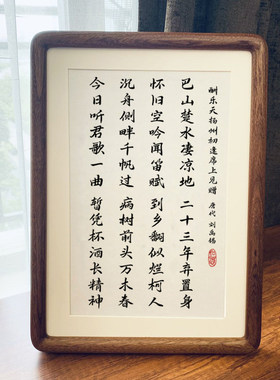 酬乐天扬州初逢席上见赠 唐代 刘禹锡
巴山楚水凄凉地 二十三年弃置身
怀旧空吟闻笛赋 到乡翻似烂柯人
沉舟侧畔千帆过 病树前头万木春
今日听君歌一曲 暂凭杯酒长精神